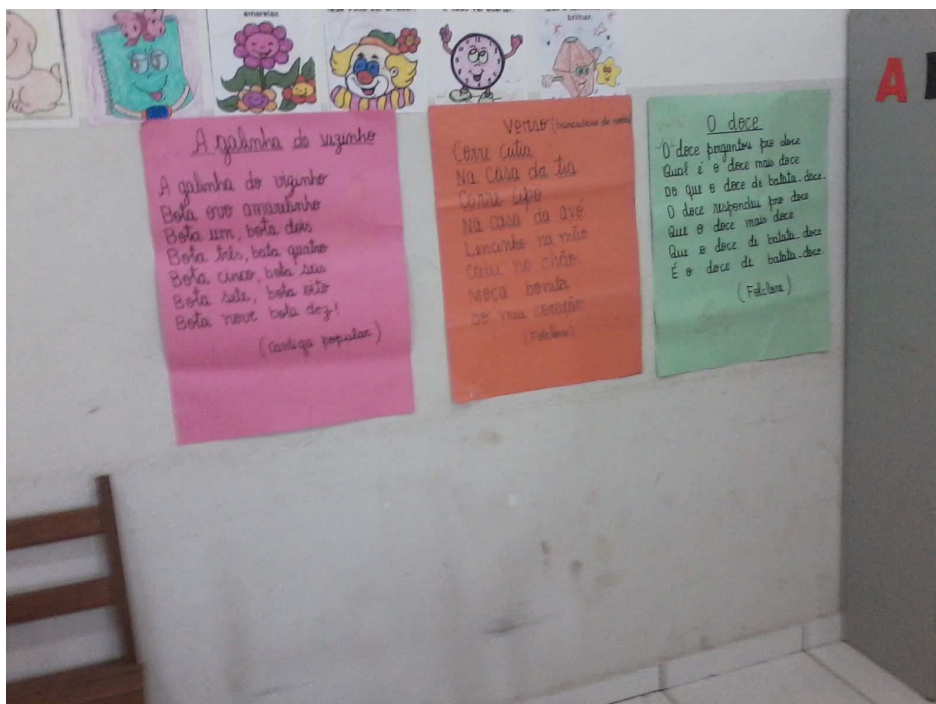 amarelas.
brilhar.
A
A galinha do vizinho
A galinha do vizinho
Bota ovo amarelinho
Bota um, bota dois
Bota três, bota quatro
Bota cinco, bota seis
Bota sete, bota oito
Bota nove bota dez!
(Cantiga popular)
Verso (brincadeira de roda)
Corre cutia
Na casa da tia
Corre cipó
Na casa da avó
Lencinho na mão
caiu no chão.
Moça bonita
Do meu coração
(Folclore)
O doce
O doce perguntou pro doce
Qual é o doce mais doce
Do que o doce de batata-doce.
O doce respondeu pro doce
Que o doce mais doce
Que o doce de batata-doce
É o doce de batata-doce.
(Folclore)